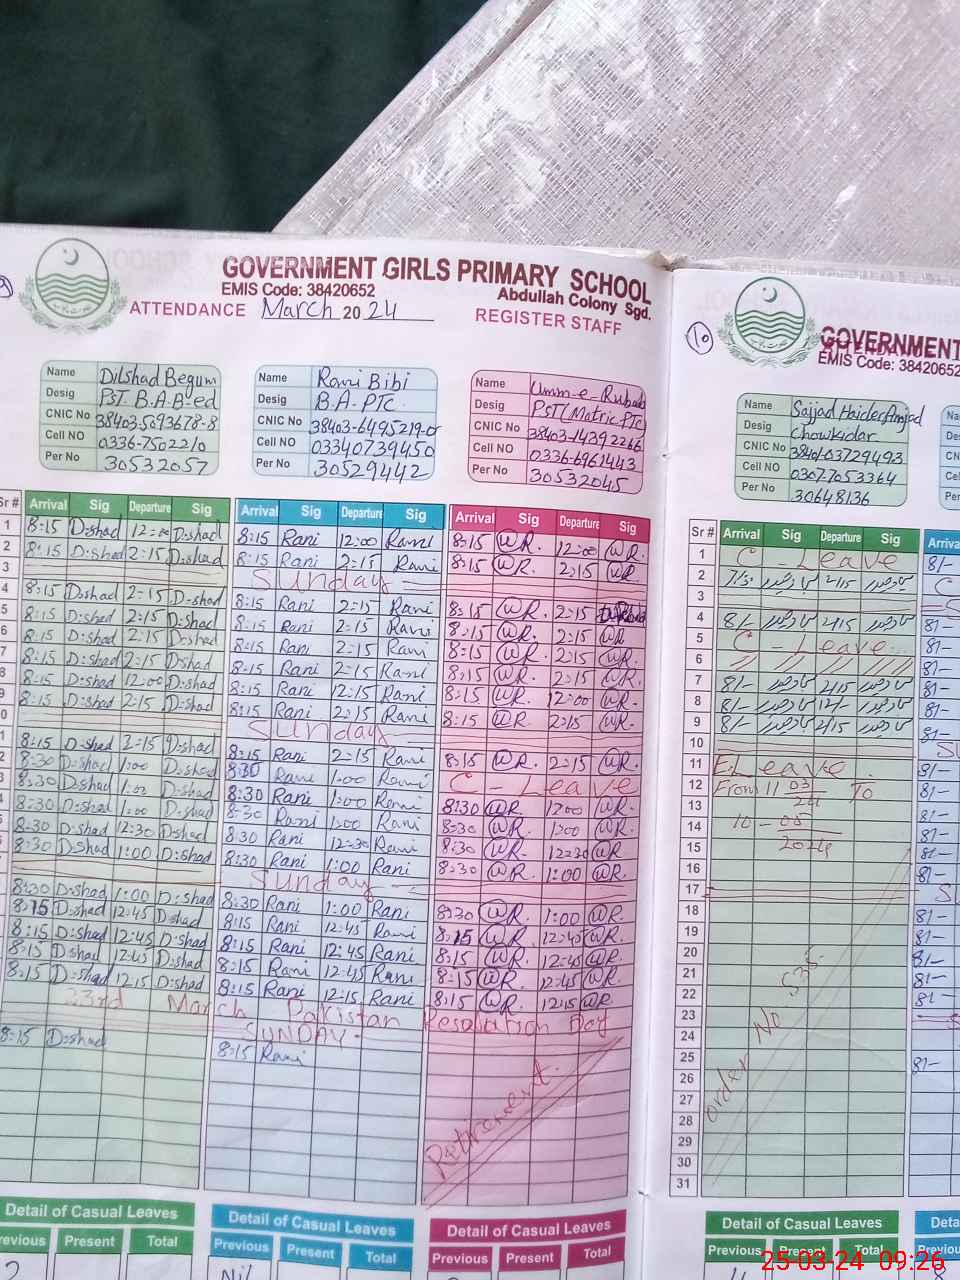 GOVERNMENT GIRLS PRIMARY SCHOOL
EMIS Code: 38420652
Abdullah Colony Sgd.
ATTENDANCE March 2024
REGISTER STAFF
Name Dilshad Begum
Desig PST B.A B-ed
CNIC No 38403-5693678-8
Cell NO 0336-7502210
Per No 30532057
Name Rani Bibi
Desig B.A-PTC.
CNIC No 38403-6495219-0
Cell NO 03340739450
Per No 30529442
Name Umm-e-Rubab
Desig PST (Matric PTC)
CNIC No 38403-14392266
Cell NO 0336-6961443
Per No 30532045
Sr # Arrival Sig Departure Sig Arrival Sig Departure Sig Arrival Sig Departure Sig
1 8:15 D:shad 12:00 D:shad 8:15 Rani 12:00 Rani 8:15 WR. 12:00 WR.
2 8:15 D:shad 2:15 D:shad 8:15 Rani 2:15 Rani 8:15 WR. 2:15 WR.
3 Sunday
4 8:15 D:shad 2:15 D:shad 8:15 Rani 2:15 Rani 8:15 WR. 2:15
5 8:15 D:shad 2:15 D:shad 8:15 Rani 2:15 Rani 8:15 WR. 2:15 WR
6 8:15 D:shad 2:15 D:shad 8:15 Rani 2:15 Rani 8:15 WR. 2:15 WR.
7 8:15 D:shad 2:15 D:shad 8:15 Rani 2:15 Rani 8:15 WR. 2:15 WR.
8 8:15 D:shad 12:00 D:shad 8:15 Rani 12:15 Rani 8:15 WR. 12:00 WR.
9 8:15 D:shad 2:15 D:shad 8:15 Rani 2:15 Rani 8:15 WR 2:15 WR.
0 Sunday
1 8:15 D:shad 2:15 D:shad 8:15 Rani 2:15 Rani 8:15 WR. 2:15 WR.
2 8:30 D:shad 1:00 D:shad 8:30 Rani 1:00 Rani C - Leave
3 8:30 D:shad 1:00 D:shad 8:30 Rani 1:00 Rani 8:30 WR. 1:00 WR.
4 8:30 D:shad 1:00 D:shad 8:30 Rani 1:00 Rani 8:30 WR. 1:00 WR.
5 8:30 D:shad 12:30 D:shad 8:30 Rani 12:30 Rani 8:30 WR. 12:30 WR.
6 8:30 D:shad 1:00 D:shad 8:30 Rani 1:00 Rani 8:30 WR. 1:00 WR.
Sunday
8:30 D:shad 1:00 D:shad 8:30 Rani 1:00 Rani 8:30 WR. 1:00 WR.
8:15 D:shad 12:45 D:shad 8:15 Rani 12:45 Rani 8:15 WR. 12:45 WR.
8:15 D:shad 12:45 D:shad 8:15 Rani 12:45 Rani 8:15 WR. 12:45 WR.
8:15 D:shad 12:45 D:shad 8:15 Rani 12:45 Rani 8:15 WR. 12:45 WR.
8:15 D:shad 12:15 D:shad 8:15 Rani 12:15 Rani 8:15 WR. 12:15 WR.
23rd March Pakistan Resolution Day
SUNDAY
8:15 D:shad 8:15 Rani
Retirement.
Detail of Casual Leaves
Previous Present Total
2
Detail of Casual Leaves
Previous Present Total
Nil
Detail of Casual Leaves
Previous Present Total
10
GOVERNMENT
ATTENDANCE
EMIS Code: 38420652
Name Sajjad Haider Amjad
Desig Chowkidar
CNIC No 38401-03729493
Cell NO 0307-7053364
Per No 30648136
Sr # Arrival Sig Departure Sig Arrival
1 C - Leave 8/-
2 7/30 2/15
3
4 8/- 2/15 8/-
5 C - Leave 8/-
6 8/-
7 8/- 2/15 8/-
8 8/- 12/- 8/-
9 8/- 2/15 8/-
10
11 E.Leave 8/-
12 From 11-03/24 To 8/-
13 8/-
14 10-05/2024 8/-
15 8/-
16 8/-
17
18 8/-
19 8/-
20 8/-
21 8/-
22 8/-
23
24
25 8/-
26
27
28
29
30
31
order No 535
Detail of Casual Leaves
Previous Present Total
25-03-24 09:26